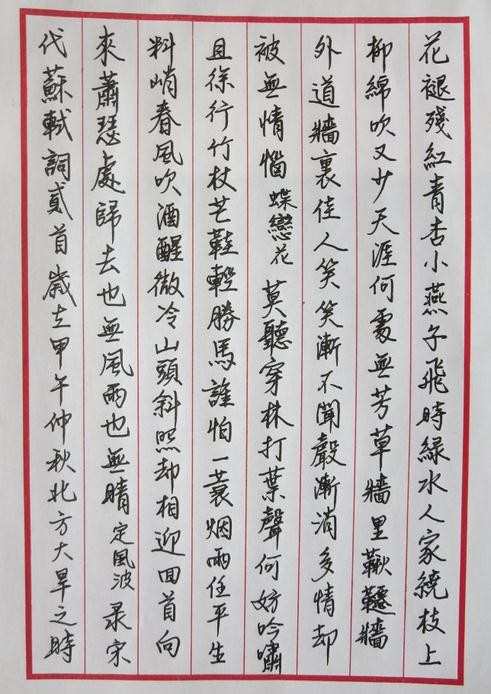 花褪残紅青杏小燕子飛時緑水人家繞枝上
柳綿吹又少天涯何處無芳草牆里鞦韆牆
外道牆裏佳人笑笑漸不聞聲漸消多情却
被無情惱 蝶戀花 莫聽穿林打葉聲何妨吟嘯
且徐行竹杖芒鞋輕勝馬誰怕一蓑烟雨任平生
料峭春風吹酒醒微冷山頭斜照却相迎回首向
來蕭瑟處歸去也無風雨也無晴 定風波 录宋
代蘇軾詞貳首歲在甲午仲秋北方大旱之時